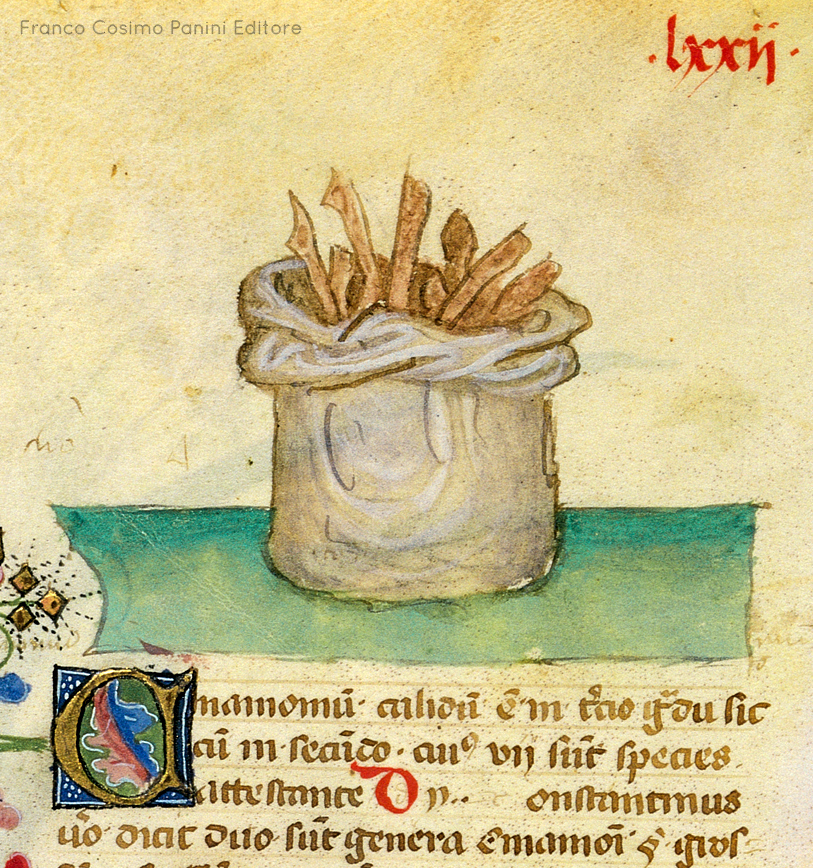 Franco Cosimo Panini Editore
·lxxij·
Cinamomū· calidū ē in t̄cio gͣdu sic
cū in secūdo· cuiꝰ vij sūt species
attestante Dy·· onstantinus
ūo dicit duo sūt genera cinamoī· s̄· gros-